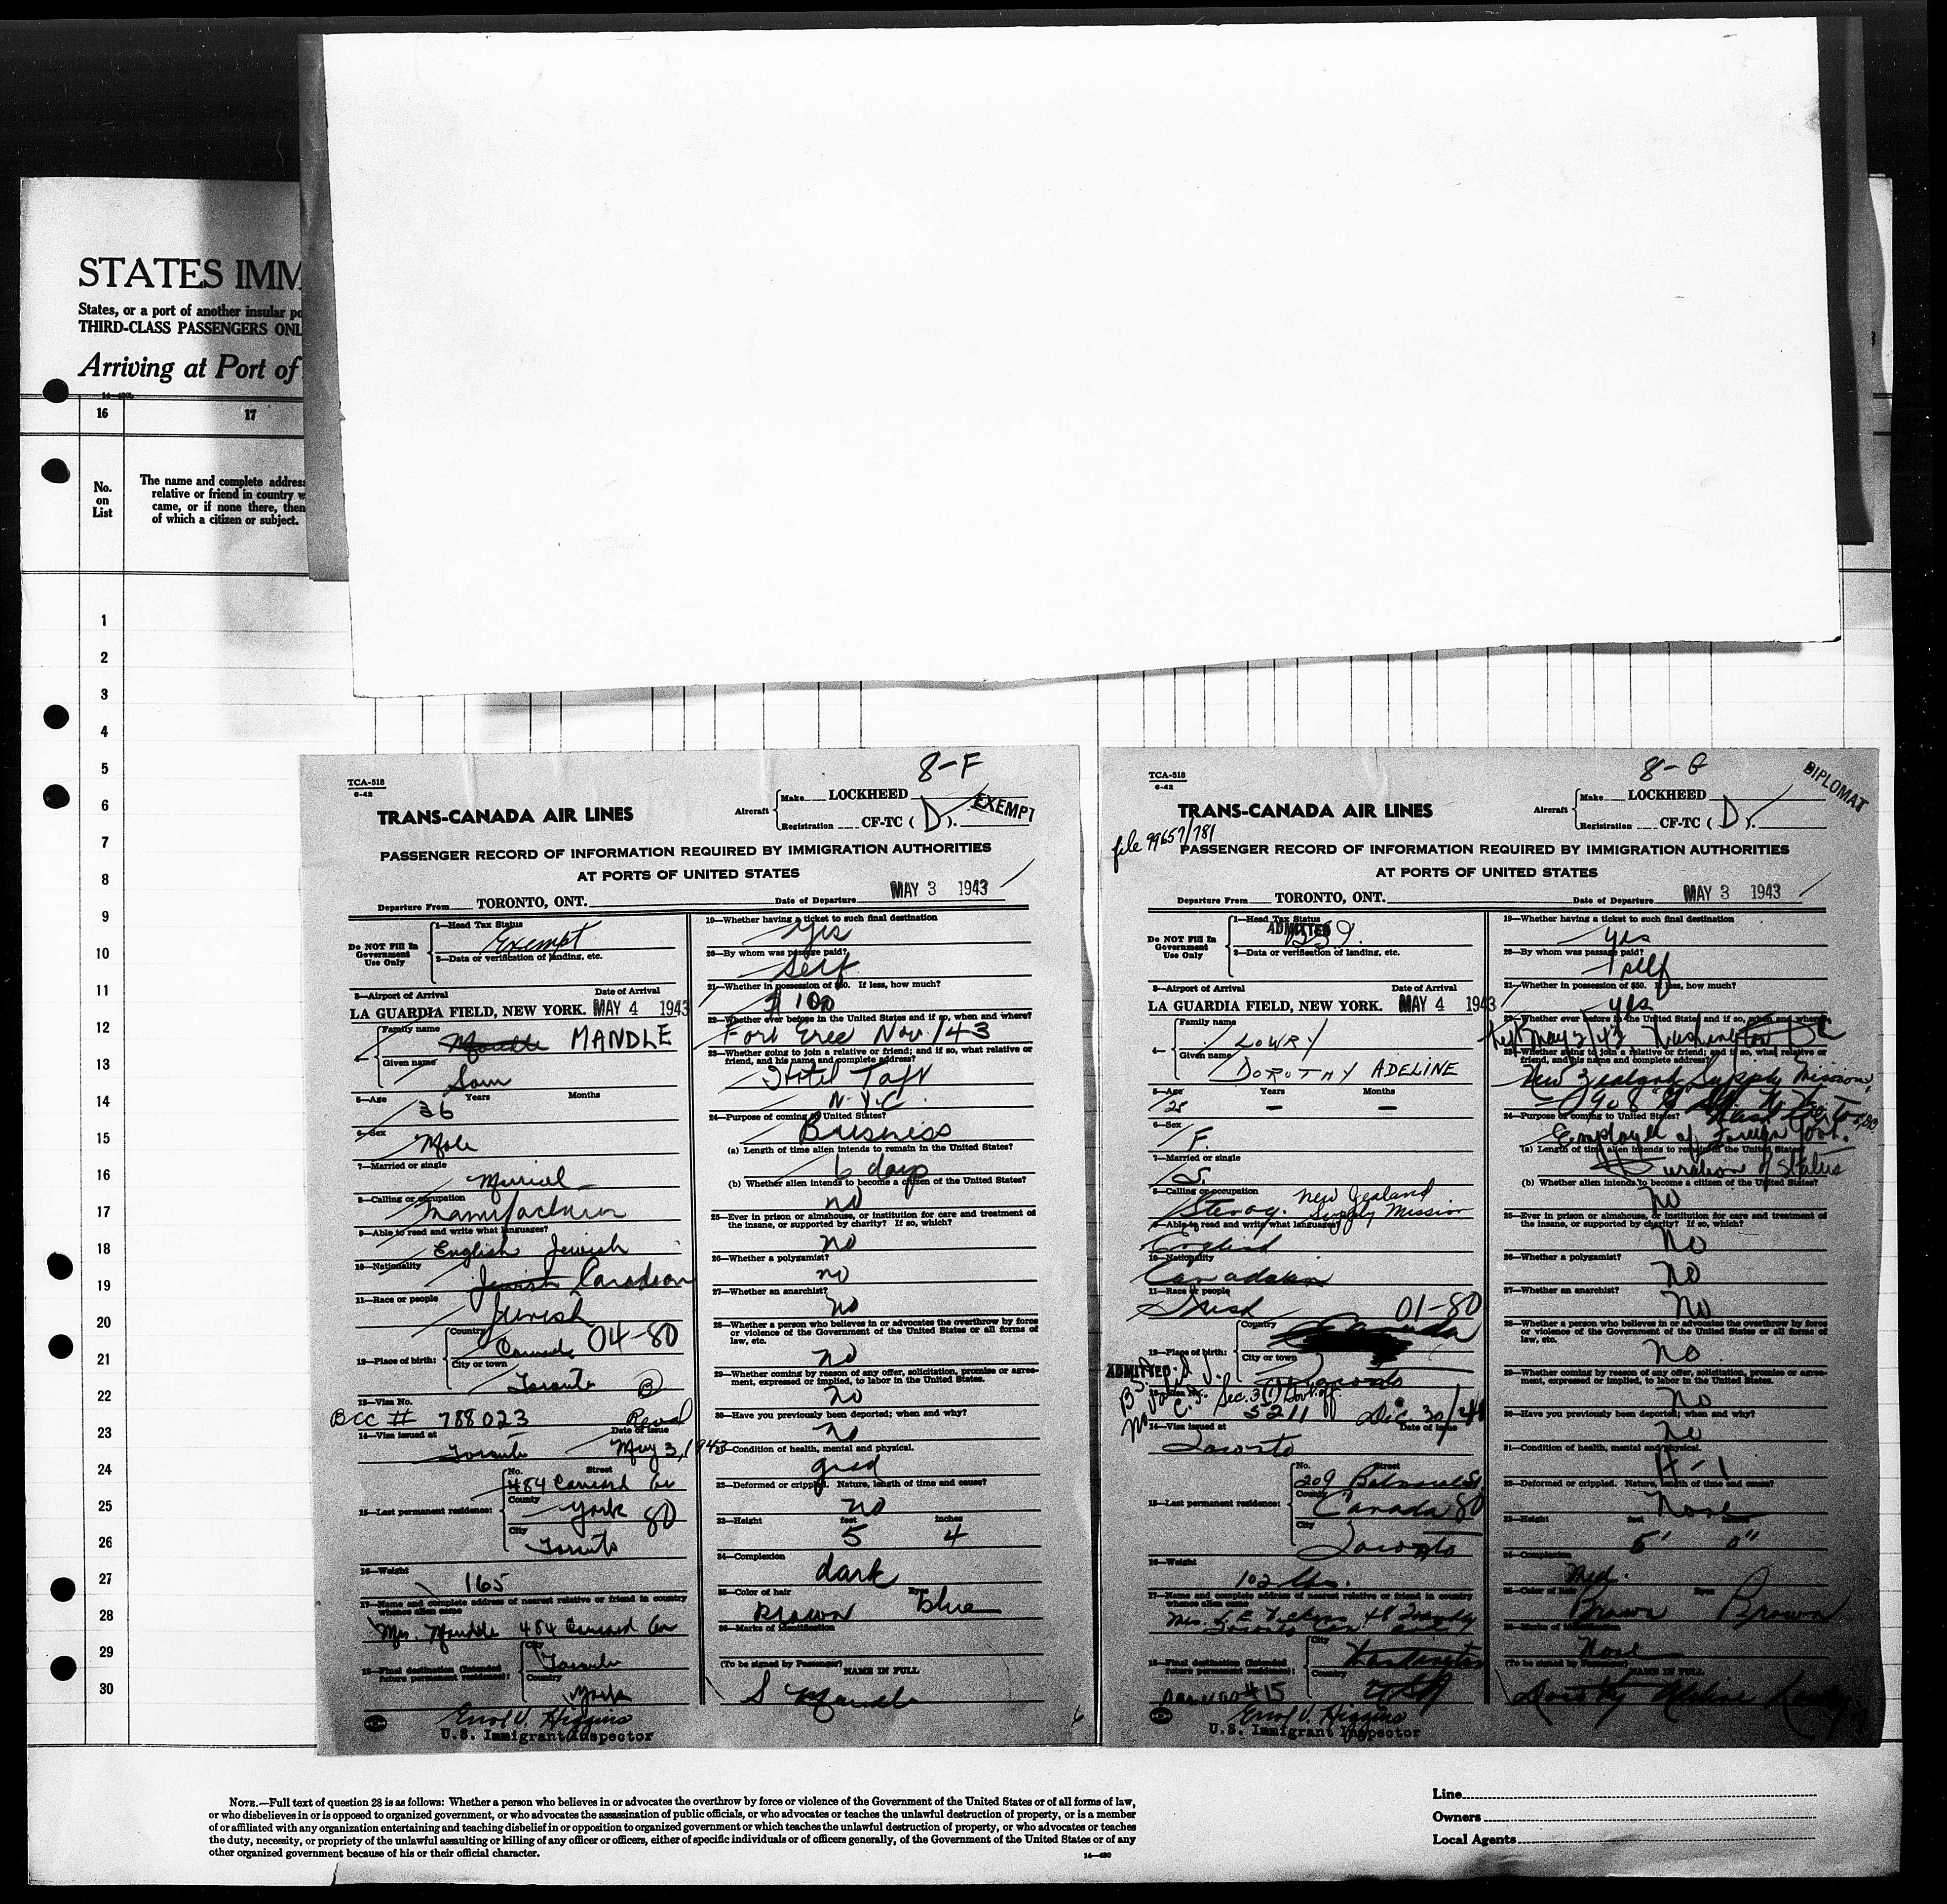 STATES IMM
States, or a port of another insular po
THIRD-CLASS PASSENGERS ONL
Arriving at Port of
16 17
No. on List
The name and complete address
relative or friend in country w
came, or if none there, then
of which a citizen or subject.
1
2
3
4
5
6
7
8
9
10
11
12
13
14
15
16
17
18
19
20
21
22
23
24
25
26
27
28
29
30
8-F
TCA-518
6-42
TRANS-CANADA AIR LINES
Aircraft Make LOCKHEED
Registration CF-TC ( D ).
EXEMPT
PASSENGER RECORD OF INFORMATION REQUIRED BY IMMIGRATION AUTHORITIES
AT PORTS OF UNITED STATES
Departure From TORONTO, ONT. Date of Departure MAY 3 1943
Do NOT Fill In Government Use Only
1—Head Tax Status
Exempt
2—Data or verification of landing, etc.
3—Airport of Arrival Date of Arrival
LA GUARDIA FIELD, NEW YORK. MAY 4 1943
4— Family name MANDLE
Given name Sam
5—Age 36 Years Months
6—Sex Male
7—Married or single
8—Calling or occupation
Manufacturer
9—Able to read and write what languages?
English Jewish
10—Nationality
Jewish Canadian
11—Race or people
Jewish
12—Place of birth: Country Canada 04-80
City or town Toronto B
13—Visa No.
BCC # 788023
14—Visa issued at Date of issue
Toronto May 3, 1943
15—Last permanent residence: No. Street
484
County York 80
City Toronto
16—Weight 165
17—Name and complete address of nearest relative or friend in country
whence alien came
Mrs. Mandle 484
18—Final destination (Intended future permanent residence): City Toronto
Country York
Errol V. Higgins
U.S. Immigrant Inspector
19—Whether having a ticket to such final destination
Yes
20—By whom was passage paid?
Self
21—Whether in possession of $50. If less, how much?
$ 100
22—Whether ever before in the United States and if so, when and where?
Fort Erie Nov./43
23—Whether going to join a relative or friend; and if so, what relative or
friend, and his name and complete address?
Hotel Taft
N.Y.C.
24—Purpose of coming to United States?
Business
(a) Length of time alien intends to remain in the United States?
6 days
(b) Whether alien intends to become a citizen of the United States?
no
25—Ever in prison or almshouse, or institution for care and treatment of
the insane, or supported by charity? If so, which?
no
26—Whether a polygamist?
no
27—Whether an anarchist?
no
28—Whether a person who believes in or advocates the overthrow by force
or violence of the Government of the United States or all forms of
law, etc.
no
29—Whether coming by reason of any offer, solicitation, promise or agree-
ment, expressed or implied, to labor in the United States.
no
30—Have you previously been deported; when and why?
no
31—Condition of health, mental and physical.
good
32—Deformed or crippled. Nature, length of time and cause?
no
33—Height feet inches
5 4
34—Complexion
dark
35—Color of hair Eyes
Brown blue
36—Marks of identification
(To be signed by Passenger) NAME IN FULL
S Mandle
6
8-G
DIPLOMAT
TCA-518
6-42
TRANS-CANADA AIR LINES
Aircraft Make LOCKHEED
Registration CF-TC ( D ).
file 99657/781
PASSENGER RECORD OF INFORMATION REQUIRED BY IMMIGRATION AUTHORITIES
AT PORTS OF UNITED STATES
Departure From TORONTO, ONT. Date of Departure MAY 3 1943
Do NOT Fill In Government Use Only
1—Head Tax Status
ADMITTED
2—Data or verification of landing, etc.
3—Airport of Arrival Date of Arrival
LA GUARDIA FIELD, NEW YORK. MAY 4 1943
4— Family name LOWRY
Given name DOROTHY ADELINE
5—Age 25 Years — Months —
6—Sex F.
7—Married or single
S.
8—Calling or occupation New Zealand
Stenog. Supply Mission
9—Able to read and write what languages?
English
10—Nationality
Canadian
11—Race or people
Irish 01-80
12—Place of birth: Country Canada
City or town Toronto
ADMITTED
Sec. 3(1) Govt. off.
5211 Dec. 30/
14—Visa issued at Date of issue
Toronto
15—Last permanent residence: No. Street
209 Balmoral
County Canada 80
City Toronto
16—Weight 102 lbs.
17—Name and complete address of nearest relative or friend in country
whence alien came
Mrs. L. E.
Toronto Can.
18—Final destination (Intended future permanent residence): City Washington
Country USA
Errol V. Higgins
U.S. Immigrant Inspector
19—Whether having a ticket to such final destination
yes
20—By whom was passage paid?
self
21—Whether in possession of $50. If less, how much?
yes
22—Whether ever before in the United States and if so, when and where?
left May 2/43 Washington DC
23—Whether going to join a relative or friend; and if so, what relative or
friend, and his name and complete address?
New Zealand Supply Mission,
24—Purpose of coming to United States?
Employee of Foreign Govt.
(a) Length of time alien intends to remain in the United States?
Duration of Status
(b) Whether alien intends to become a citizen of the United States?
no
25—Ever in prison or almshouse, or institution for care and treatment of
the insane, or supported by charity? If so, which?
NO
26—Whether a polygamist?
NO
27—Whether an anarchist?
NO
28—Whether a person who believes in or advocates the overthrow by force
or violence of the Government of the United States or all forms of
law, etc.
NO
29—Whether coming by reason of any offer, solicitation, promise or agree-
ment, expressed or implied, to labor in the United States.
NO
30—Have you previously been deported; when and why?
NO
31—Condition of health, mental and physical.
A-1
32—Deformed or crippled. Nature, length of time and cause?
None
33—Height feet inches
5' 0"
34—Complexion
Med.
35—Color of hair Eyes
Brown Brown
36—Marks of identification
None
(To be signed by Passenger) NAME IN FULL
Dorothy Adeline Lowry
NOTE.—Full text of question 28 is as follows: Whether a person who believes in or advocates the overthrow by force or violence of the Government of the United States or of all forms of law,
or who disbelieves in or is opposed to organized government, or who advocates the assassination of public officials, or who advocates or teaches the unlawful destruction of property, or is a member
of or affiliated with any organization entertaining and teaching disbelief in or opposition to organized government or which teaches the unlawful destruction of property, or who advocates or teaches
the duty, necessity, or propriety of the unlawful assaulting or killing of any officer or officers, either of specific individuals or of officers generally, of the Government of the United States or of any
other organized government because of his or their official character.
Line
Owners
Local Agents